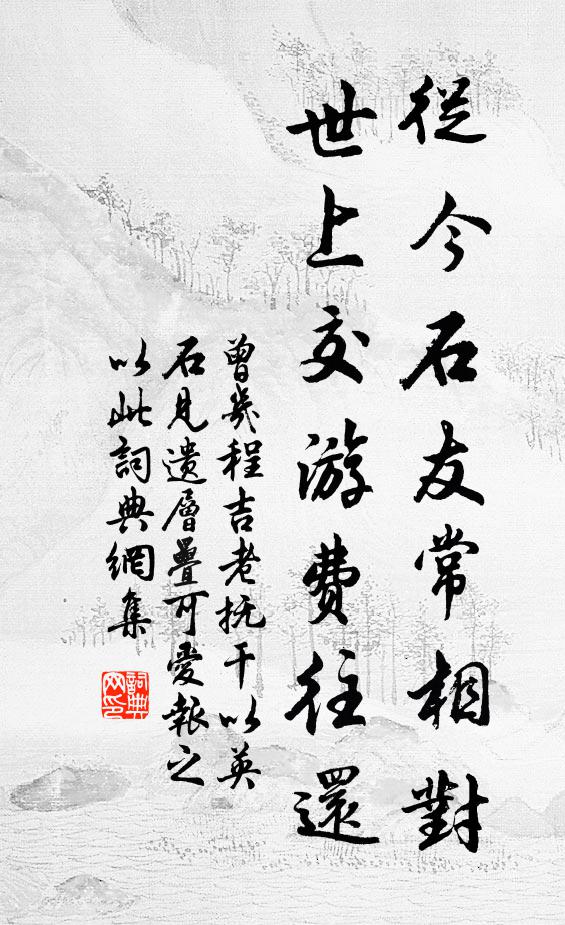 從今石友常相對
世上交游費往還
曾幾程吉老抚干以英
石見遗層疊可愛報之
以此詞典網集
詞典网印